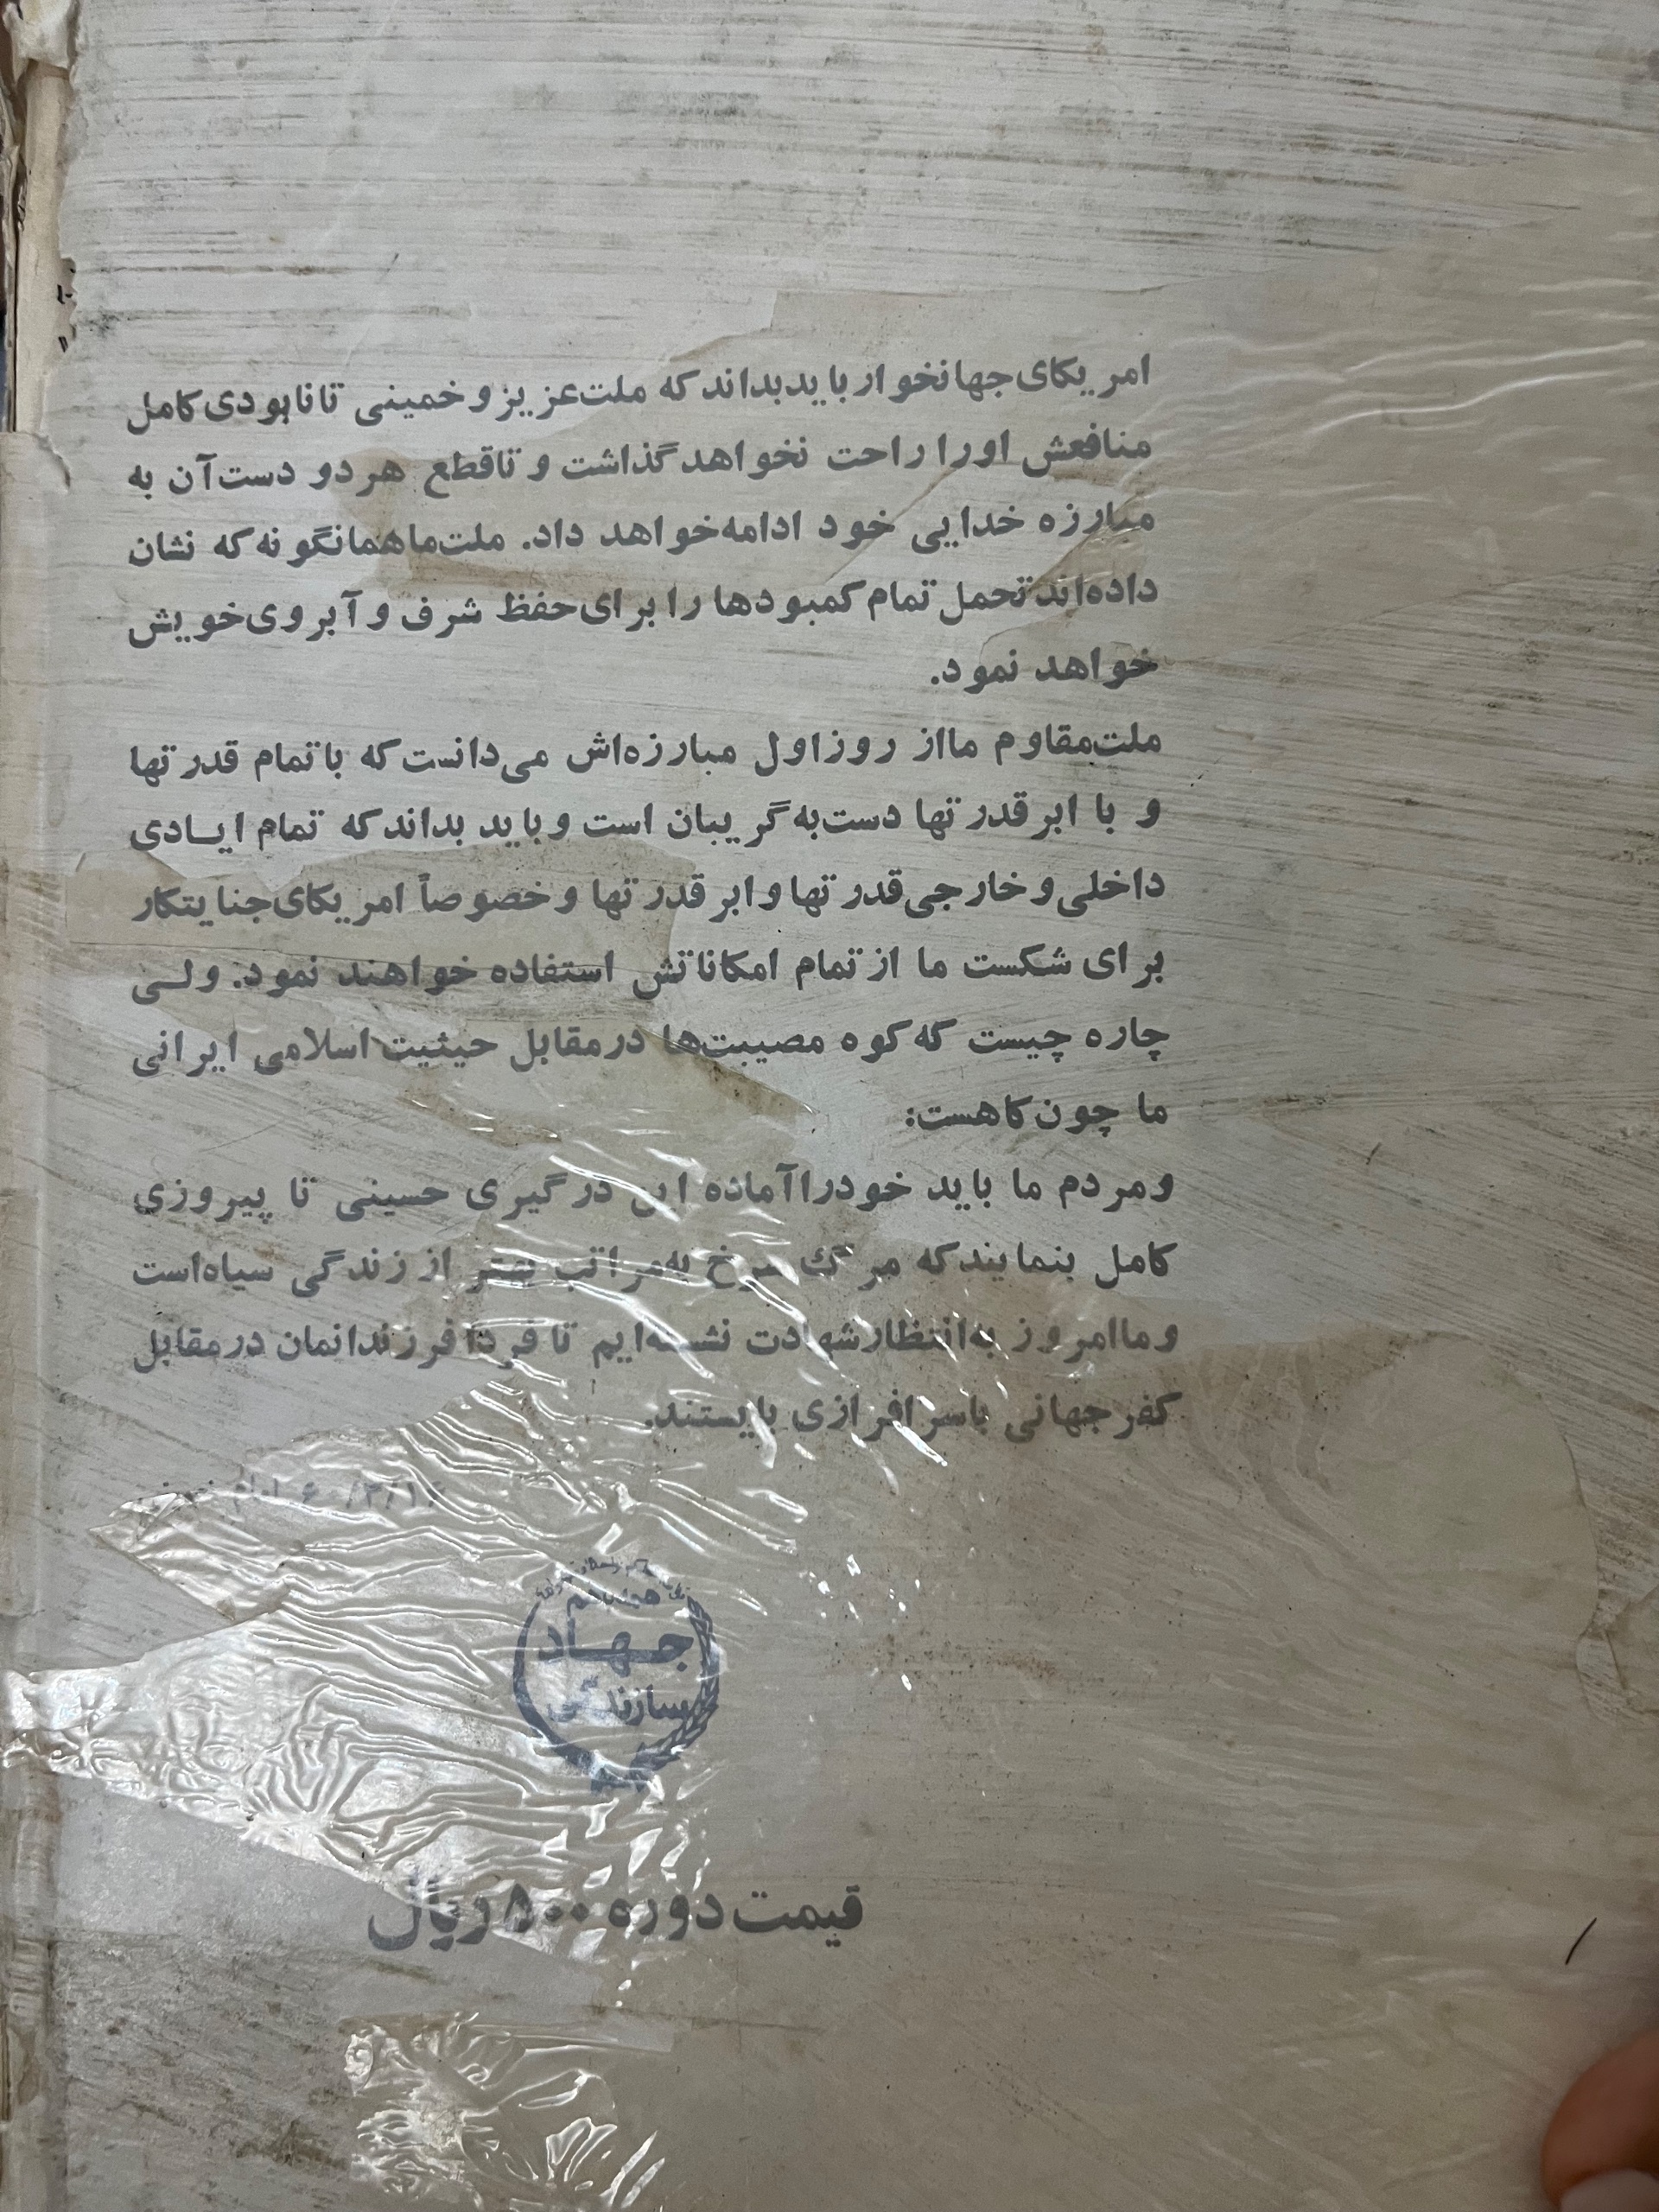 امریکای جهانخوار باید بداند که ملت عزیز و خمینی تا نابودی کامل
منافعش او را راحت نخواهد گذاشت و تا قطع هر دو دست آن به
مبارزه خدایی خود ادامه خواهد داد. ملت ما همانگونه که نشان
داده‌اند تحمل تمام کمبودها را برای حفظ شرف و آبروی خویش
خواهد نمود.
ملت مقاوم ما از روز اول مبارزه‌اش می‌دانست که با تمام قدرتها
و با ابرقدرتها دست به گریبان است و باید بداند که تمام ایادی
داخلی و خارجی قدرتها و ابرقدرتها و خصوصاً امریکای جنایتکار
برای شکست ما از تمام امکاناتش استفاده خواهند نمود. ولی
چاره چیست که کوه مصیبت‌ها در مقابل حیثیت اسلامی ایرانی
ما چون کاهست:
و مردم ما باید خود را آماده این درگیری حسینی تا پیروزی
کامل بنمایند که مرگ سرخ به‌مراتب بهتر از زندگی سیاه است
و ما امروز به‌انتظار شهادت نشسته‌ایم تا فردا فرزندانمان در مقابل
کفر جهانی با سرافرازی بایستند.
همه باهم
جهاد
سازندگی
قیمت دوره ۵۰۰ ریال